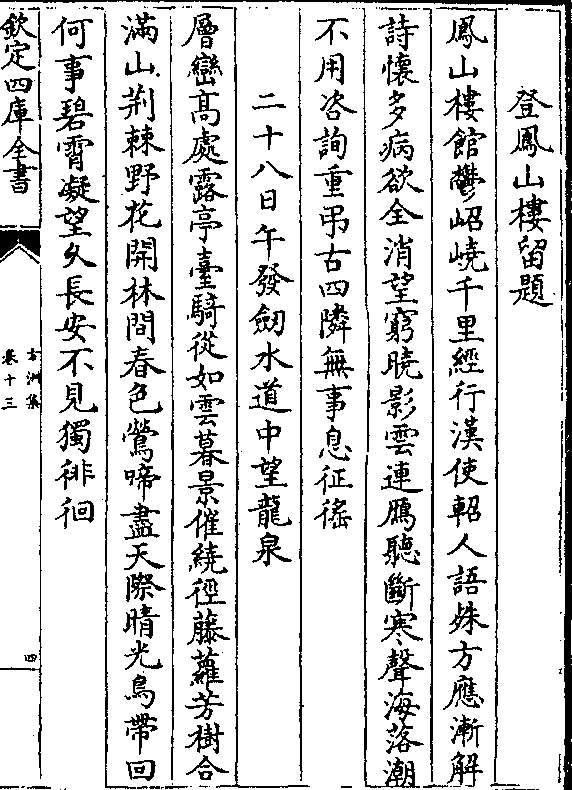 登鳳山樓留題
鳳山樓館鬱岹嶢千里經行漢使軺人語殊方應漸解
詩懷多病欲全消望窮曉影雲連鴈聽斷寒聲海落潮
不用咨詢重弔古四隣無事息征徭
二十八日午發劒水道中望龍泉
層巒髙處露亭臺騎從如雲暮景催繞徑藤蘿芳樹合
滿山荆棘野花開林間春色鶯啼盡天際晴光鳥帶回
何事碧霄凝望久長安不見獨徘徊
欽定四庫全書
方洲集
卷十三
四